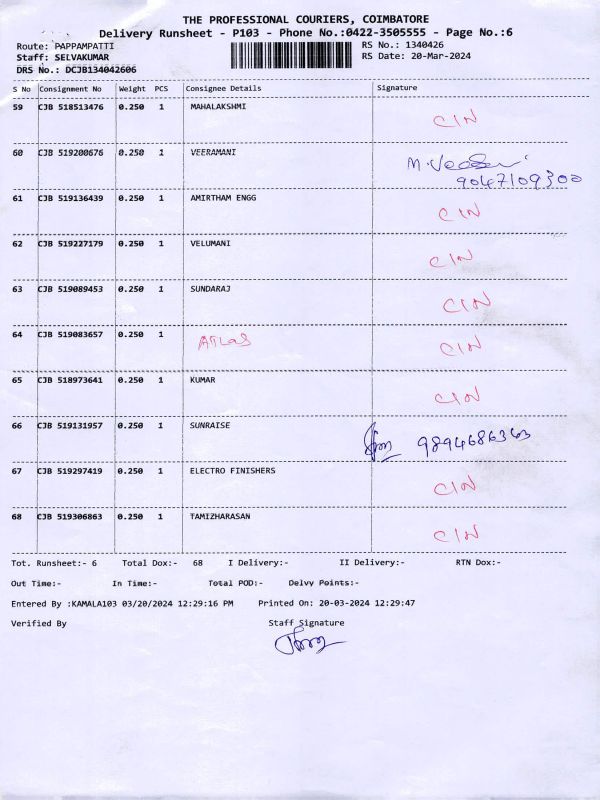 THE PROFESSIONAL COURIERS, COIMBATORE
Delivery Runsheet - P103 - Phone No.:0422-3505555 - Page No.:6
Route: PAPPAMPATTI RS No.: 1340426
Staff: SELVAKUMAR RS Date: 20-Mar-2024
DRS No.: DCJB134042606
S No Consignment No Weight PCS Consignee Details Signature
59 CJB 518513476 0.250 1 MAHALAKSHMI CIN
60 CJB 519200676 0.250 1 VEERAMANI M.
9047109300
61 CJB 519136439 0.250 1 AMIRTHAM ENGG CIN
62 CJB 519227179 0.250 1 VELUMANI CIN
63 CJB 519089453 0.250 1 SUNDARAJ CIN
64 CJB 519083657 0.250 1 ATLAS CIN
65 CJB 518973641 0.250 1 KUMAR CIN
66 CJB 519131957 0.250 1 SUNRAISE 9894686363
67 CJB 519297419 0.250 1 ELECTRO FINISHERS CIN
68 CJB 519306863 0.250 1 TAMIZHARASAN CIN
Tot. Runsheet:- 6 Total Dox:- 68 I Delivery:- II Delivery:- RTN Dox:-
Out Time:- In Time:- Total POD:- Delvy Points:-
Entered By :KAMALA103 03/20/2024 12:29:16 PM Printed On: 20-03-2024 12:29:47
Verified By Staff Signature